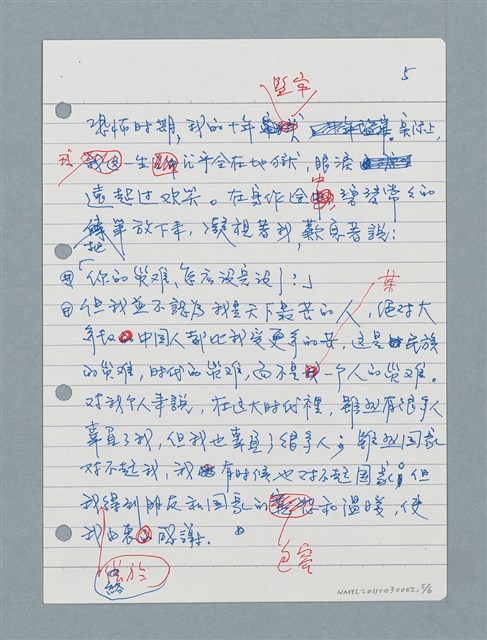 5
監牢
恐怖时期，我的十年
实际上，
我 一生 几乎全在地狱，眼淚
遠超过欢笑。在寫作全中，碧琴常々的
把筆放下来，凝想着我，歎息着說：
「你的災难，怎应没完没了？」
但我並不認为我是天下最苦的人，绝对大
多数中國人都比我受更多的苦，这是民族
的災难，时代的災难，而不是某一个人的災难。
对我个人来說，在这大时代裡，雖然有很多人
辜負了我，但我也辜負了很多人；雖然国家
对不起我，我有时候也对不起国家；但
我得到朋友和国家的 和温暖，使
我 感謝。
包容
給於
NMTL20110030002, 5/6